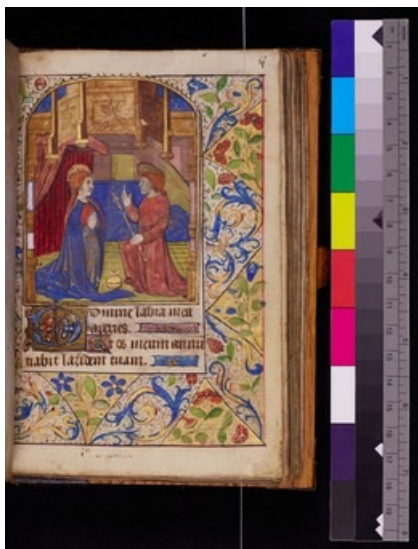 Domine labia mea
aperies.
Et os meum annun
tiabit laudem tuam.